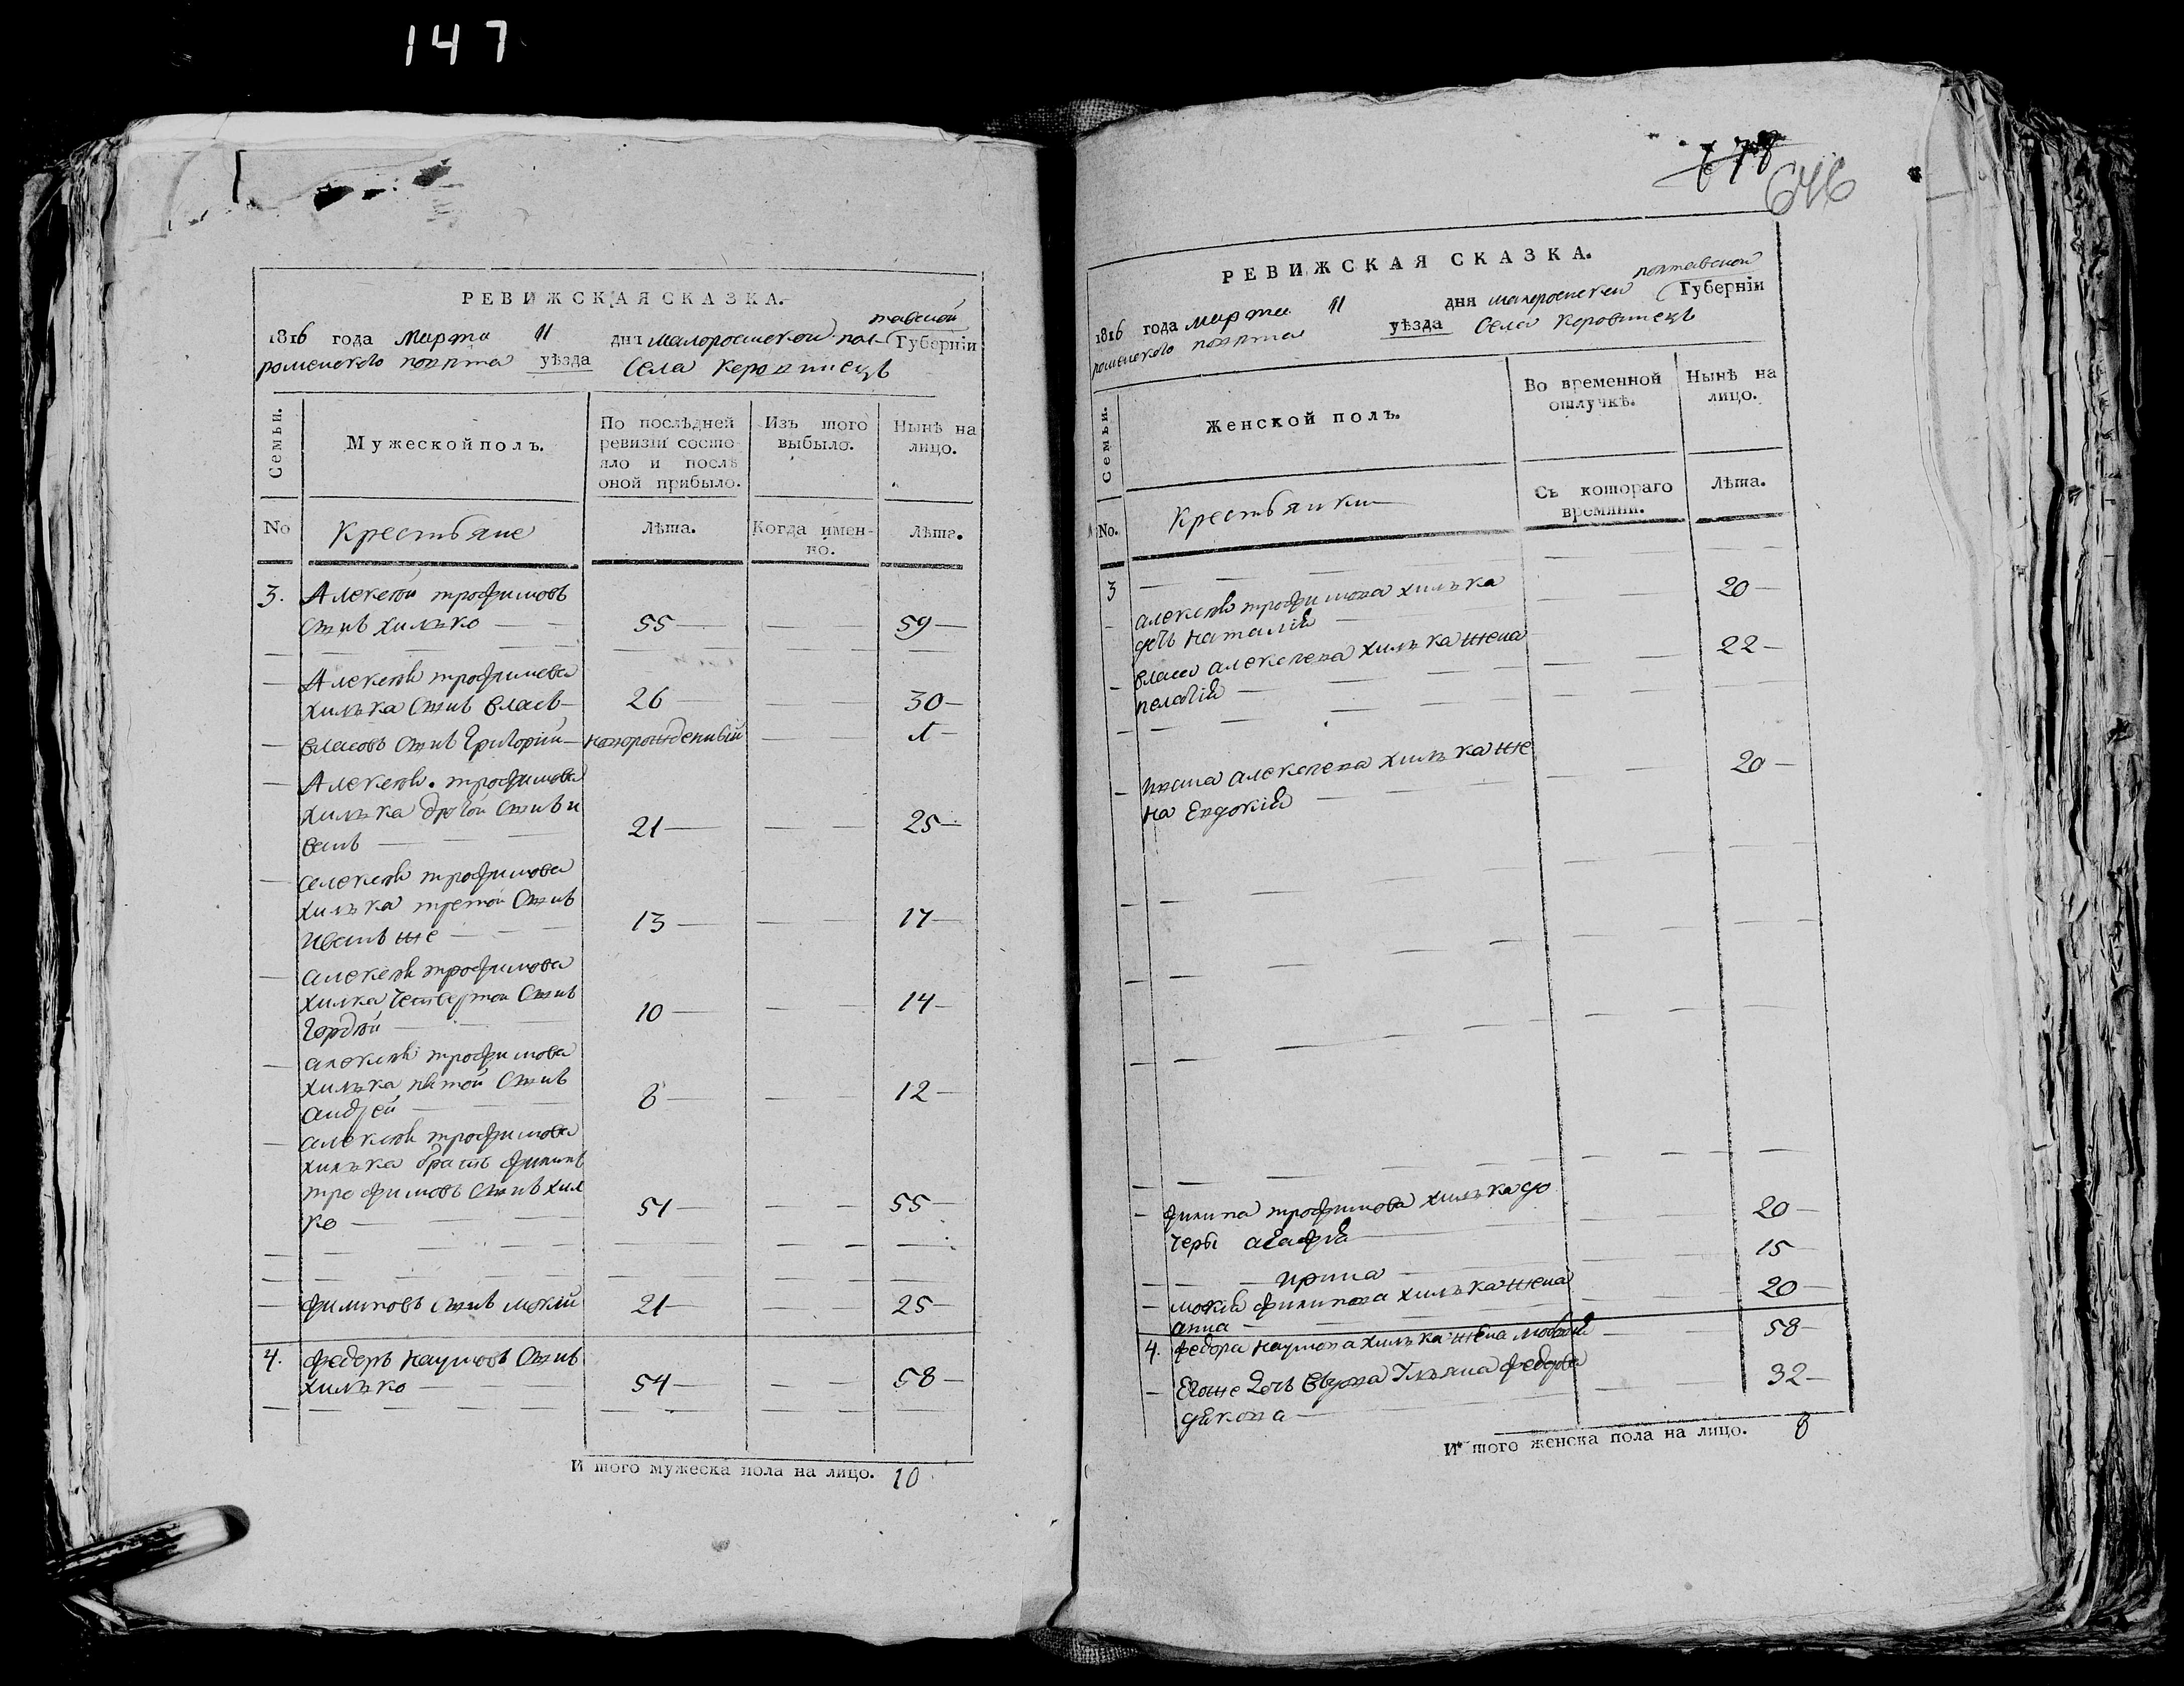 147
РЕВИЖСКАЯ СКАЗКА.
тавской
1816 года марта 11 дня малоросиской пол- Губерніи
роменского повѣта уѣзда села Коровинецъ
Семьи.
Мужеской полъ.
По послѣдней ревизіи состо-
яло и послѣ оной прибыло.
Изъ того выбыло.
Нынѣ на лицо.
No
Крестьяне
Лѣта.
Когда имен-
но.
Лѣта.
3. Алексѣй трофимовъ
сынъ хилько 55 59
Алексѣя трофимова
хилька сынъ власъ 26 30
власовъ сынъ Григорій новорожденный 1
Алексѣя трофимова
хилька другой сынъ и
ванъ 21 25
алексѣя трофимова
хилька третой сынъ
Иванъ же 13 17
алексѣя трофимова
хилка четвертой сынъ
Гордѣй 10 14
алексѣя трофимова
хилька пятой сынъ
андрей 8 12
алексѣя трофимова
хилька братъ филипъ
трофимовъ сынъ хил
ко 51 55
филиповъ сынъ мокій 21 25
4. федоръ наумовъ сынъ
хилько 54 58
И того мужеска пола на лицо. 10
678
646
РЕВИЖСКАЯ СКАЗКА.
полтавской
1816 года марта 11 дня малоросиской Губерніи
роменского повѣта уѣзда села Коровинецъ
Семьи.
Женской полъ.
Во временной
отлучкѣ.
Нынѣ на
лицо.
No.
Крестьянки
Съ котораго
времяни.
Лѣта.
3
алексѣя трофимова хилька 20
дочь наталія
власа алексеева хилька жена 22
пелагія
ивана алексеева хилька же 20
на Евдокія
филипа трофимова хилька до 20
чери агафія
15
ирина
мокія филипова хилька жена 20
анна
4. федора наумова хилька жена 58
Егоже дочь вдова Ульяна федорова 32
дякова
И того женска пола на лицо. 8